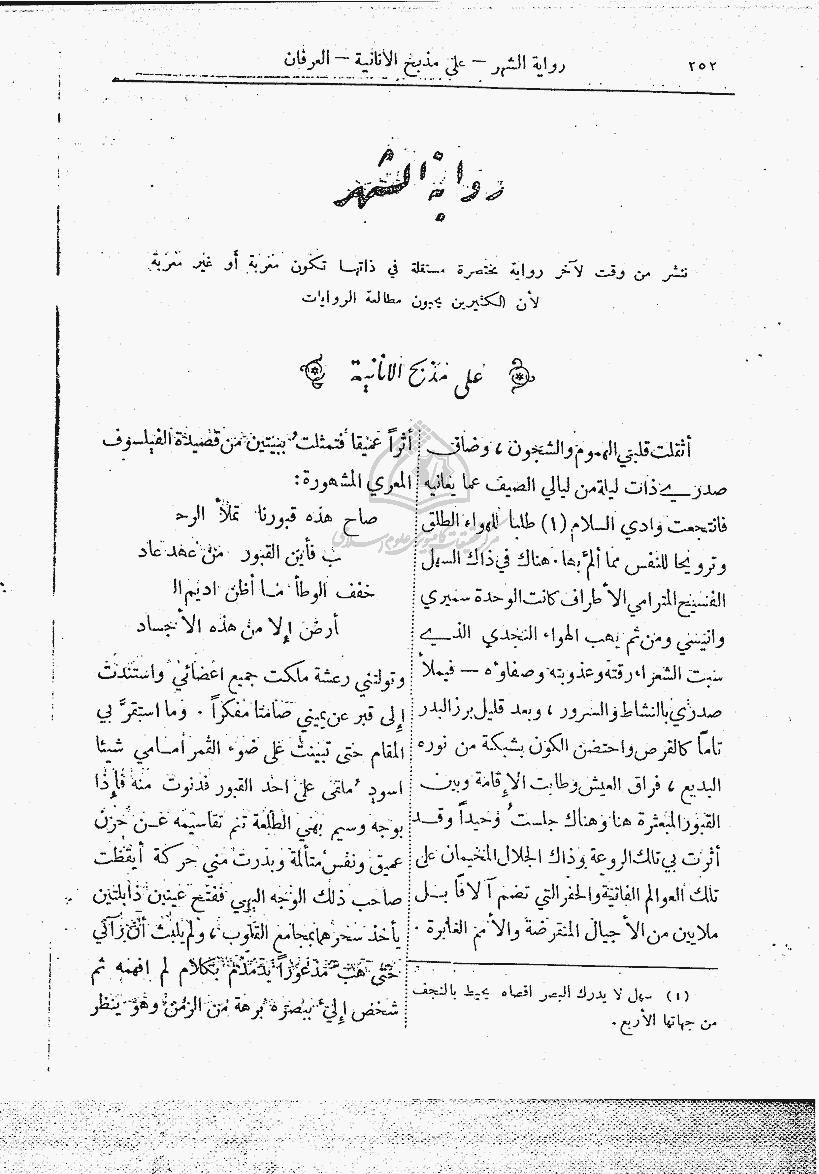 ٢٥٢
رواية الشهر — على مذبح الانانية — العرفان
رواية الشهر
ننشر من وقت لآخر رواية مختصرة مستقلة في ذاتها تكون معربة أو غير معربة
لأن الكثيرين يحبون مطالعة الروايات
على مذبح الانانية
أثقلت قلبي الهموم والشجون ، وضاق
صدري ذات ليلة من ليالي الصيف عما يعانيه
فانتجعت وادي السلام (١) طلباً للهواء الطلق
وترويحا للنفس مما ألمَّ بها . هناك في ذاك السهل
الفسيح المترامي الأطراف كانت الوحدة سميري
وانيسي ومن ثم يهب الهواء النجدي الذي
سبت الشعراء رقته وعذوبته وصفاوه — فيملأ
صدري بالنشاط والسرور ، وبعد قليل برز البدر
تاماً كالقرص واحتضن الكون بشبكة من نوره
البديع ، فراق العيش وطابت الإقامة وبين
القبور المبعثرة هنا وهناك جلستُ وحيداً وقد
أثرت بي تلك الروعة وذاك الجلال المخيمان على
تلك العوالم الفانية والحفر التي تضم آلافاً بل
ملايين من الأجيال المنقرضة والأمم الغابرة .
(١) سهل لا يدرك البصر اقصاه يحيط بالنجف
من جهاتها الأربع .
أثراً عميقا فتمثلت ببيتين من قصيدة الفيلسوف
المعري المشهورة :
صاح هذه قبورنا تملأ الرحـ
ب فأين القبور من عهد عاد
خفف الوطأ ما أظن اديم الـ
أرض إلا من هذه الأجساد
وتولتني رعشة ملكت جميع اعضائي واستندت
إلى قبر عن يميني صامتا مفكراً . وما استقرَّ بي
المقام حتى تبينت على ضوء القمر أمامي شيئا
اسود ملقى على احد القبور فدنوت منه فإذا
بوجه وسيم بهي الطلعة تنم تقاسيمه عن حزن
عميق ونفس متألمة وبدرت مني حركة أيقظت
صاحب ذلك الوجه البهي ففتح عينين ذابلتين
يأخذ سحرهما بمجامع القلوب ، ولم يلبث أن رآني
حتى هب مذعوراً يدمدم بكلام لم افهمه ثم
شخص إليَّ ببصره برهة من الزمن وهو ينظر